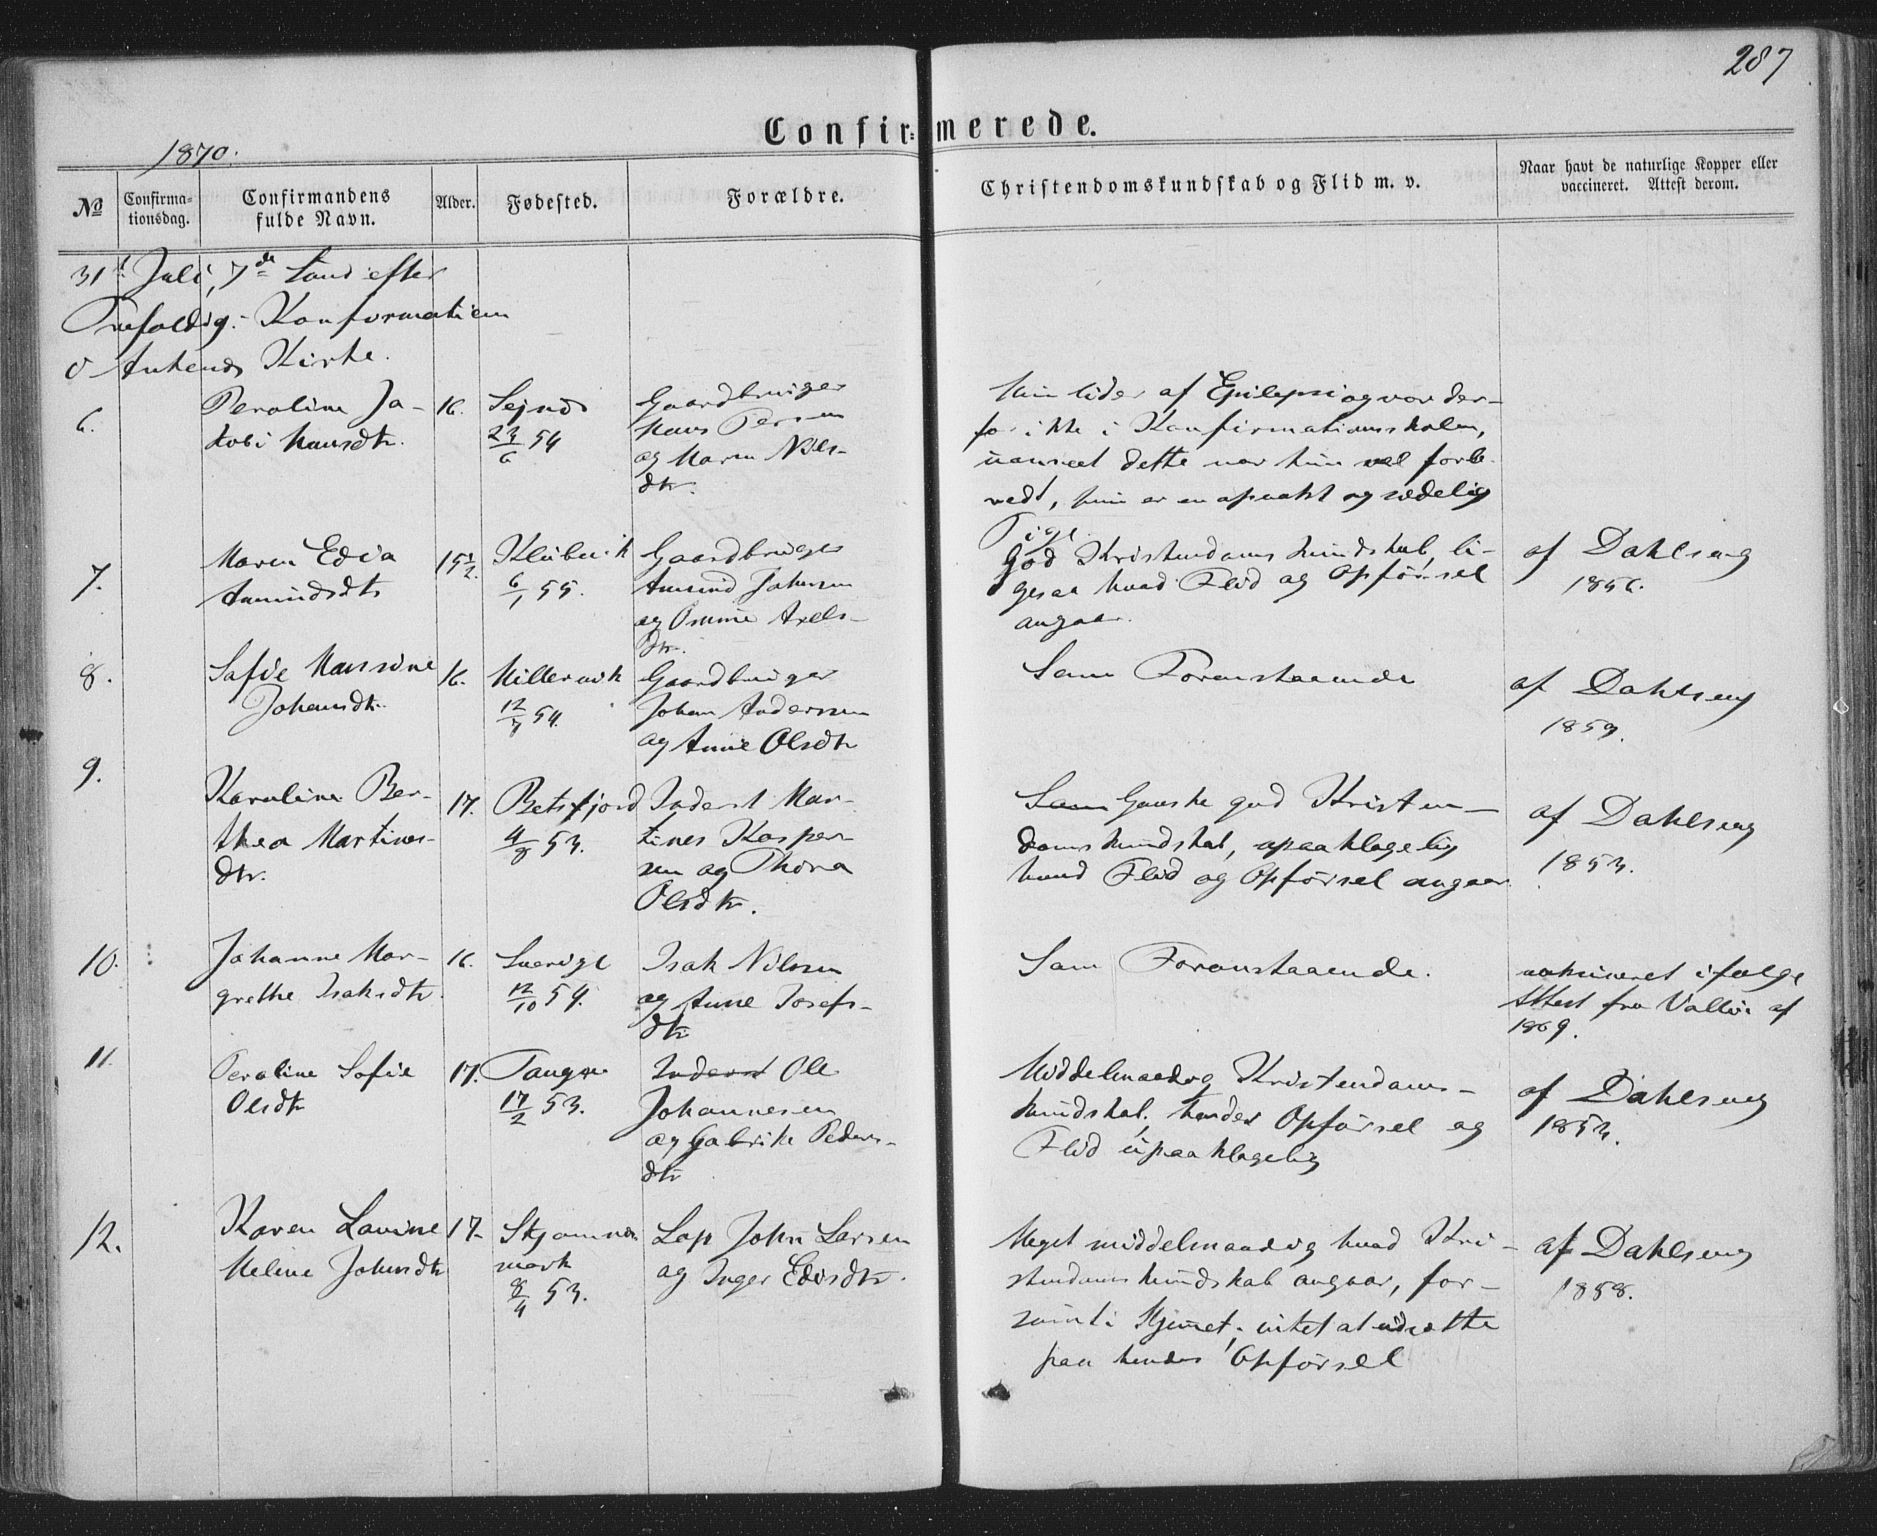 287
Confirmerede.
1870.
No
Confirma-
tionsdag.
Confirmandens
fulde Navn.
Alder.
Fødested.
Forældre.
Christendomskundskab og Flid m. v.
Naar havt de naturlige Kopper eller
vaccineret. Attest derom.
31 Juli, 7de Sønd efter
Trefoldig. Konformation
Ankenes Kirke.
6.
Peroline Ja-
kobi Hansdtr.
16.
23/6 54
Gaardbruger
Hans Persen
og Maren Nils-
dtr.
Hun lider af Epilepsi og var der-
for ikke i Konfirmationsskolen,
uanseet dette var hun vel forbe-
redt, hun er en og sædelig
Pige.
7.
Maren Edia
Amundsdtr
15 1/2.
Klubvik
6/1 55.
Gaardbruger
Amund Johnsen
og Axels-
dtr.
God Kristendomskundskab, li-
gesaa hvad Flid og Opførsel
angaar.
af Dahlseng
1856.
8.
Sofie Hansine
Johansdtr.
16.
Hillervik
12/7 54.
Gaardbruger
Johan Andersen
og Anne Olsdtr
Som Foranstaaende
af Dahlseng
1859.
9.
Karoline Ber-
thea Martines-
dtr.
17.
Beisfjord
4/8 53.
Inderst Mar-
tines Kasper-
sen og Thora
Olsdtr.
Som Ganske god Kristen-
domskundskab, upaaklagelig
hvad Flid og Opførsel angaar
af Dahlseng
1853.
10.
Johanne Mar-
grethe Isaksdtr.
16.
Sverige
12/10 54.
Isak Nilssen
og Anne Josefs-
dtr
Som Foranstaaende.
vakcineret ifølge
Attest fra af
1869.
11.
Peroline Sofie
Olsdtr
17.
17/2 53.
Inderst Ole
Johannesen
og Gabrik Peders-
dtr
Middelmaadig Kristendoms-
kundskab, hendes Opførsel og
Flid upaaklagelig
af Dahlseng
1853.
12.
Karen Lavine
Meline Johnsdtr
17.
Skjomen
mark
8/4 53.
Lap John Larsen
og Inger
Meget middelmaadig hvad Kri-
stendomskundskab angaar, for-
sømt i Hjemet, intet at udsætte
paa hendes Opførsel
af Dahlseng
1858.